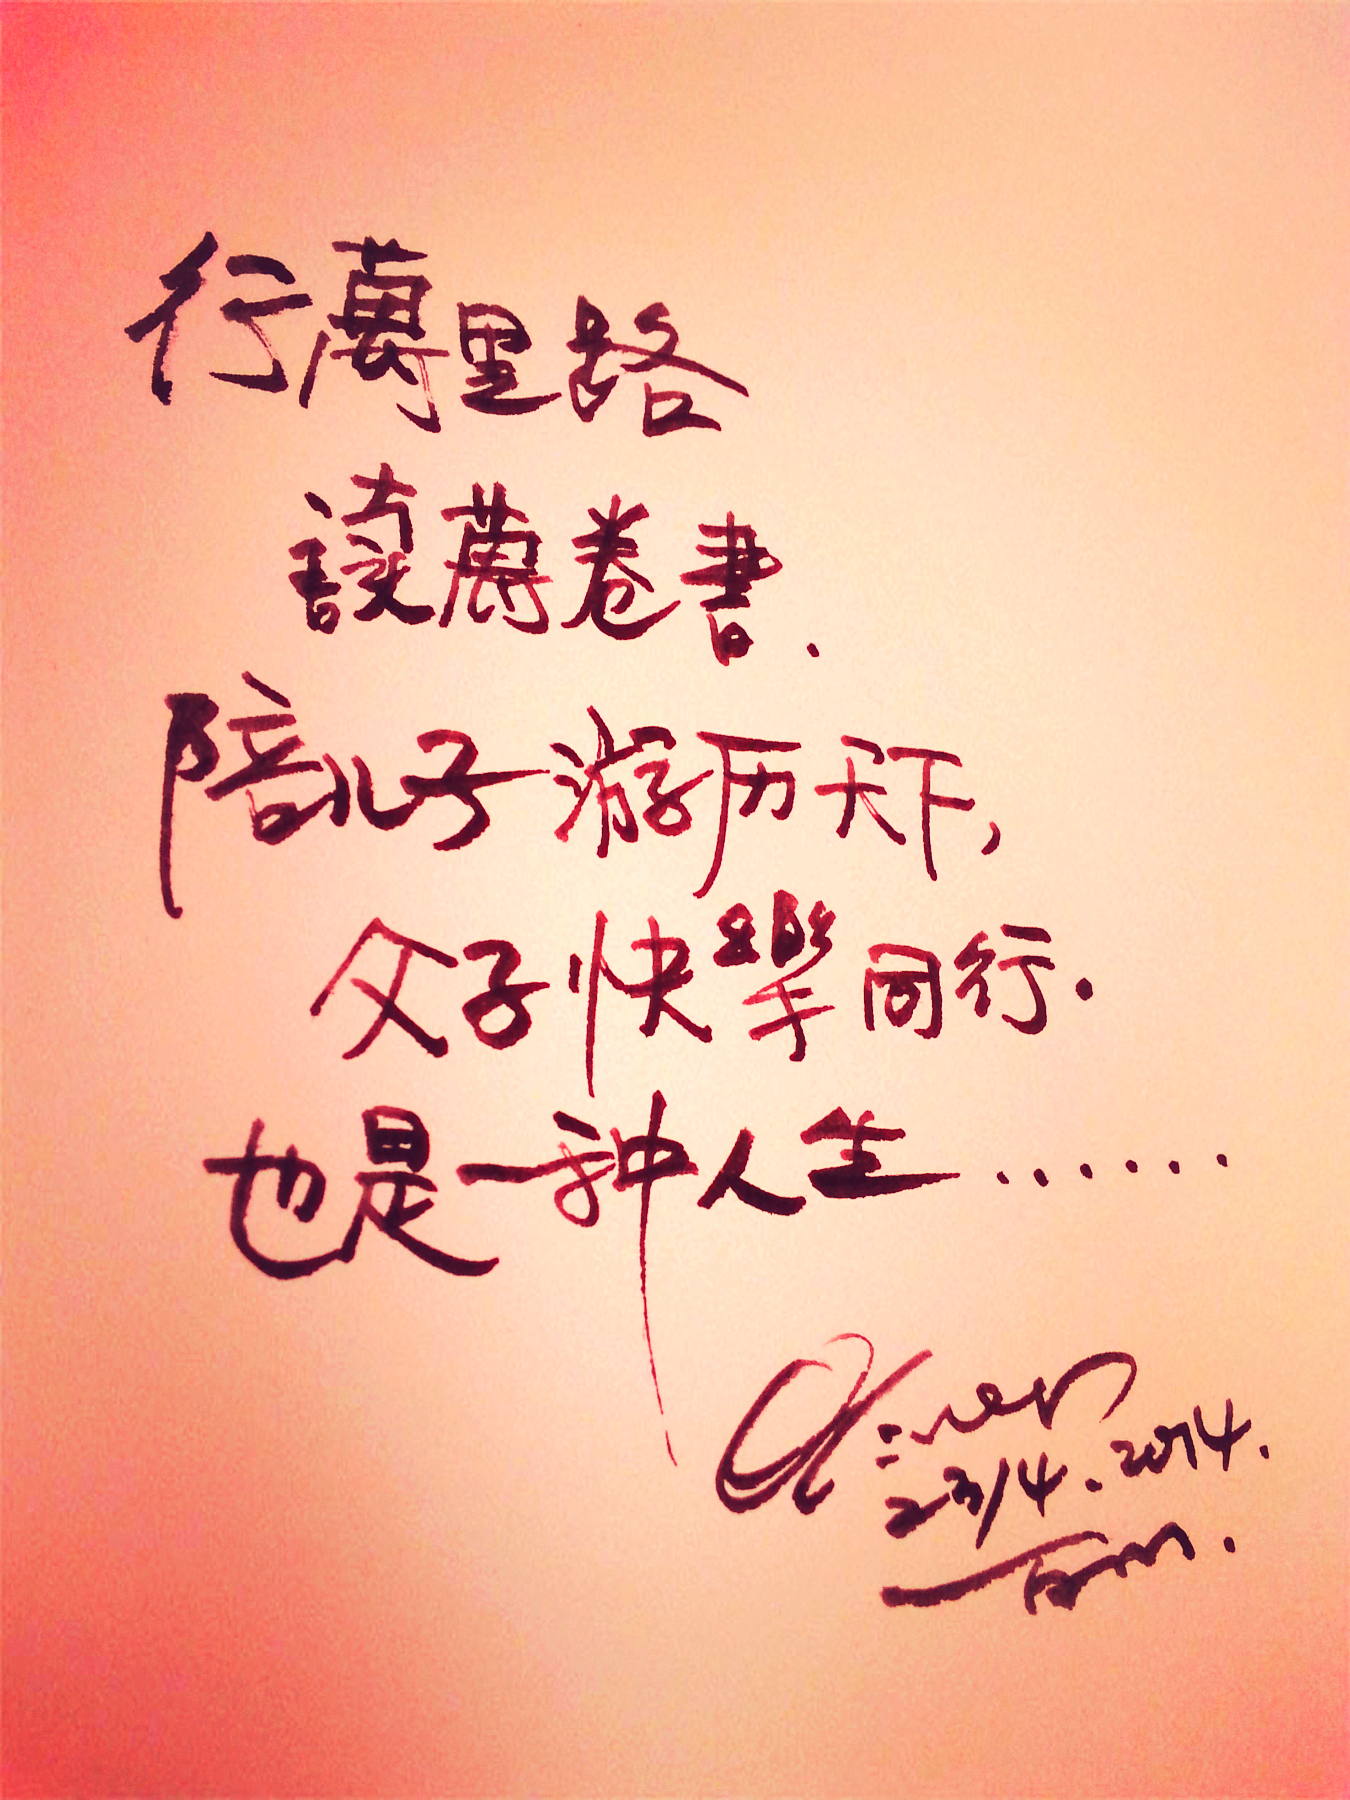 行萬里路
讀萬卷書.
陪儿子游历天下,
父子快樂同行.
也是一种人生......
23/4.2014.